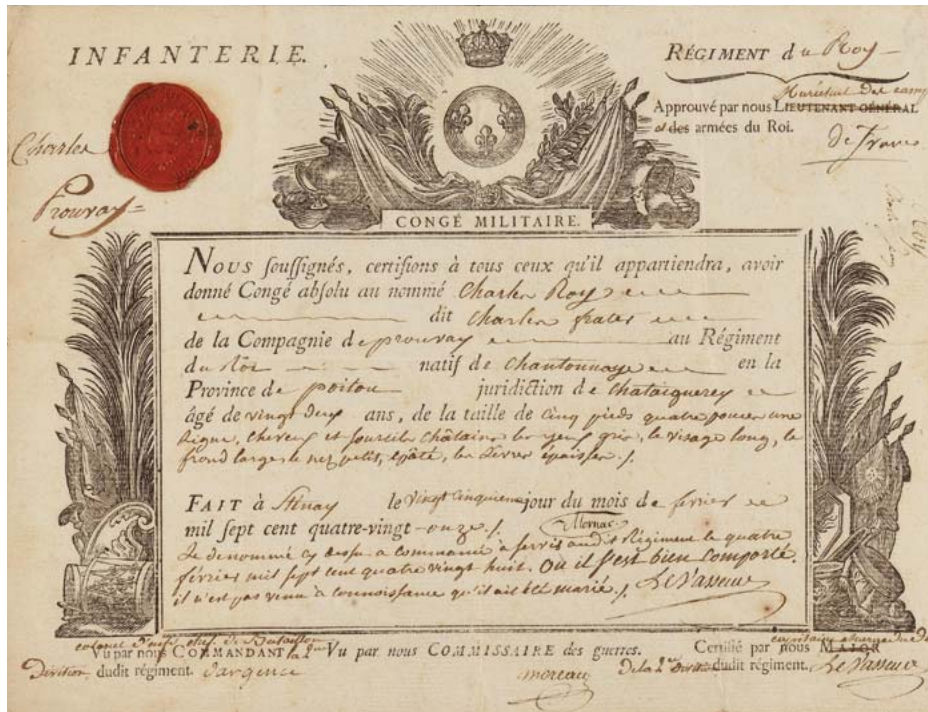 INFANTERIE.
RÉGIMENT du Roy
Maréchal des camps
Approuvé par nous LIEUTENANT GÉNÉRAL
et des armées du Roi.
De France
Charles
Prouvay
CONGÉ MILITAIRE.
NOUS soussignés, certifions à tous ceux qu'il appartiendra, avoir
donné Congé absolu au nommé Charles Roy
dit Charles frater
de la Compagnie de prouvay au Régiment
du Roi natif de Chantonnaye en la
Province de poitou juridiction de Chataigneray
âgé de vingt deux ans, de la taille de Cinq pieds quatre pouces une
ligne, cheveux et sourcils châtains les yeux gris, le visage long, le
frond large le nez petit, épâté, les Levres épaisses ./.
FAIT à Stenay le vingt Cinquieme jour du mois de fevrier
mil sept cent quatre-vingt-onze ./.
Le denommé cy dessus a commancé à servir audit Régiment le quatre
février mil sept cent quatre vingt huit. Où il s'est bien Comporté.
il n'est pas venu à connoissance qu'il ait été marié ./. Le Vasseur
colonel chef de Bataillon
Vu par nous COMMANDANT la 2me
Division dudit régiment. Dargence
Vu par nous COMMISSAIRE des guerres.
moreau
Certifié par nous MAJOR
de la 2me Division dudit régiment. Le Vasseur